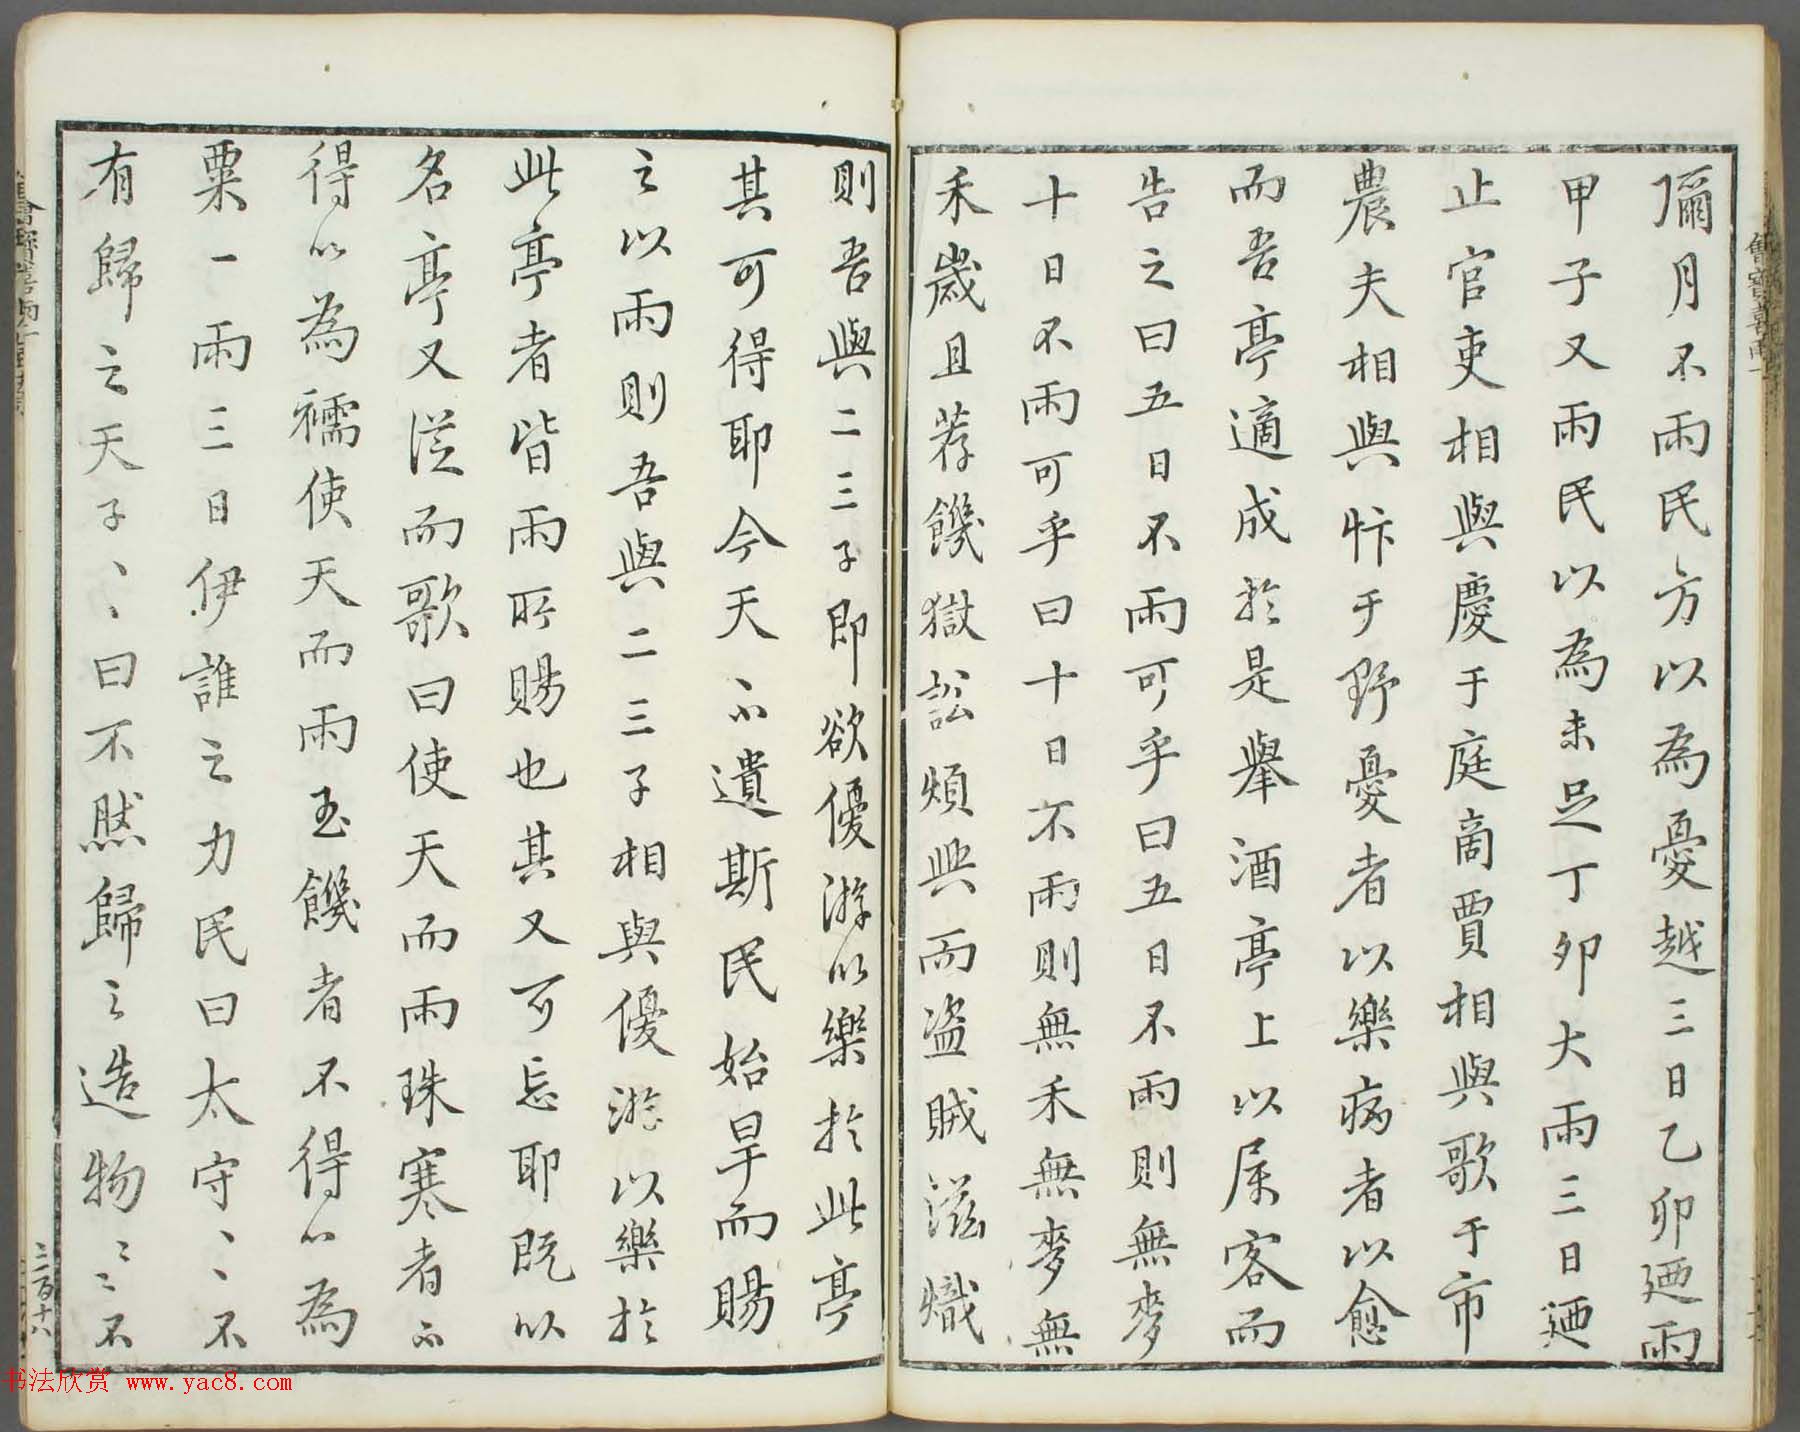 彌月不雨民方以為憂越三日乙卯廼雨
甲子又雨民以為未足丁卯大雨三日廼
止官吏相與慶于庭商賈相與歌于市
農夫相與忭于野憂者以樂病者以愈
而吾亭適成於是舉酒亭上以屬客而
告之曰五日不雨可乎曰五日不雨則無麥
十日不雨可乎曰十日不雨則無禾無麥無
禾歲且荐饑獄訟煩興而盗賊滋熾
則吾與二三子即欲優游以樂於此亭
其可得耶今天不遺斯民始旱而賜
之以雨則吾與二三子相與優游以樂於
此亭者皆雨所賜也其又可忘耶既以
名亭又從而歌曰使天而雨珠寒者不
得以為襦使天而雨玉饑者不得以為
粟一雨三日伊誰之力民曰太守、、不
有歸之天子、、曰不然歸之造物ミミ不
三百十六
书法欣赏 www.yac8.com